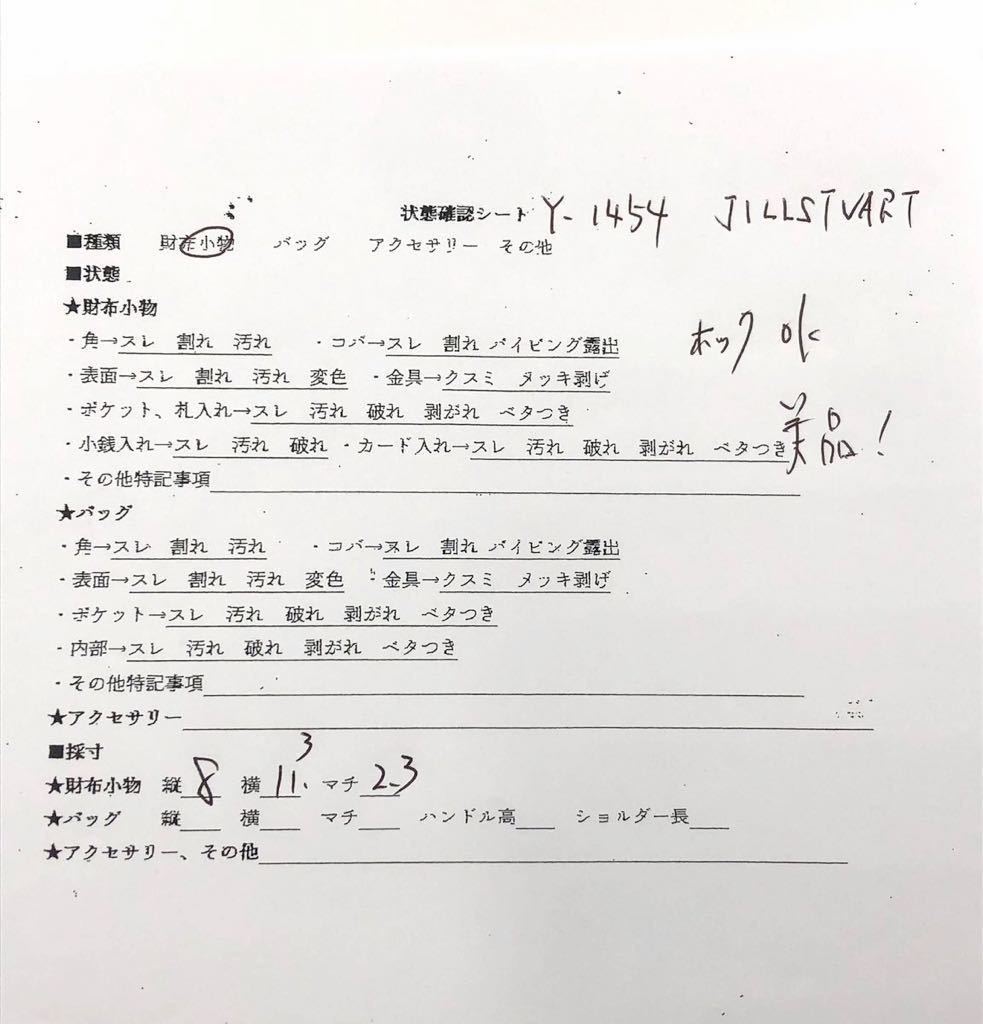 状態確認シート Y-1454 JILLSTUART
■種類 財布小物 バッグ アクセサリー その他
■状態
★財布小物
・角→スレ 割れ 汚れ ・コバ→スレ 割れ パイピング露出
ホック ok
・表面→スレ 割れ 汚れ 変色 ・金具→クスミ メッキ剥げ
・ポケット、札入れ→スレ 汚れ 破れ 剥がれ ベタつき
・小銭入れ→スレ 汚れ 破れ ・カード入れ→スレ 汚れ 破れ 剥がれ ベタつき
美品!
・その他特記事項
★バッグ
・角→スレ 割れ 汚れ ・コバ→スレ 割れ パイピング露出
・表面→スレ 割れ 汚れ 変色 ・金具→クスミ メッキ剥げ
・ポケット→スレ 汚れ 破れ 剥がれ ベタつき
・内部→スレ 汚れ 破れ 剥がれ ベタつき
・その他特記事項
★アクセサリー
■採寸
★財布小物 縦 8 横 11.3 マチ 2.3
★バッグ 縦 横 マチ ハンドル高 ショルダー長
★アクセサリー、その他